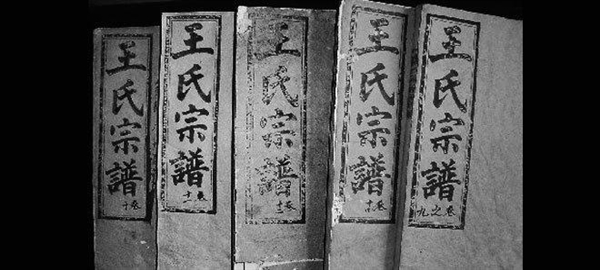 王氏宗譜
卷之九
王氏宗譜
王氏宗譜
王氏宗譜
卷十一
王氏宗譜
卷十